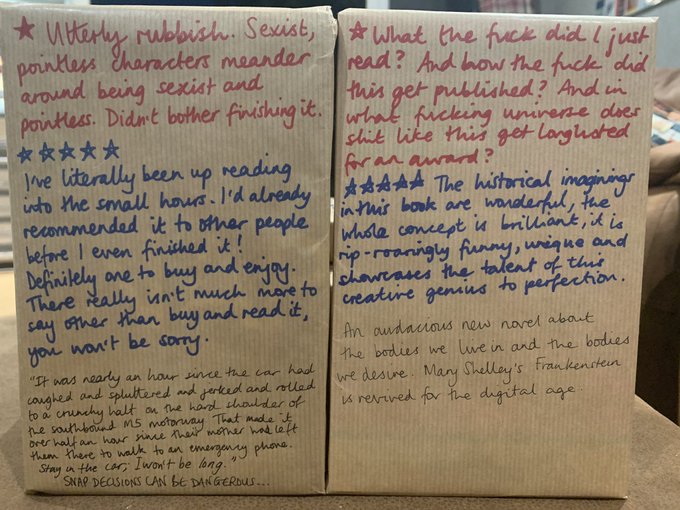 ★ Utterly rubbish. Sexist,
pointless characters meander
around being sexist and
pointless. Didn't bother finishing it.
★★★★★
I've literally been up reading
into the small hours. I'd already
recommended it to other people
before I even finished it!
Definitely one to buy and enjoy.
There really isn't much more to
say other than buy and read it,
you won't be sorry.
"It was nearly an hour since the car had
coughed and spluttered and jerked and rolled
to a crunchy halt on the hard shoulder of
the southbound M5 motorway. That made it
over half an hour since their mother had left
them there to walk to an emergency phone.
Stay in the car; I won't be long."
SNAP DECISIONS CAN BE DANGEROUS...
★ What the fuck did I just
read? And how the fuck did
this get published? And in
what fucking universe does
shit like this get longlisted
for an award?
★★★★★ The historical imaginings
in this book are wonderful, the
whole concept is brilliant, it is
rip-roaringly funny, unique and
showcases the talent of this
creative genius to perfection.
An audacious new novel about
the bodies we live in and the bodies
we desire. Mary Shelley's Frankenstein
is revived for the digital age.